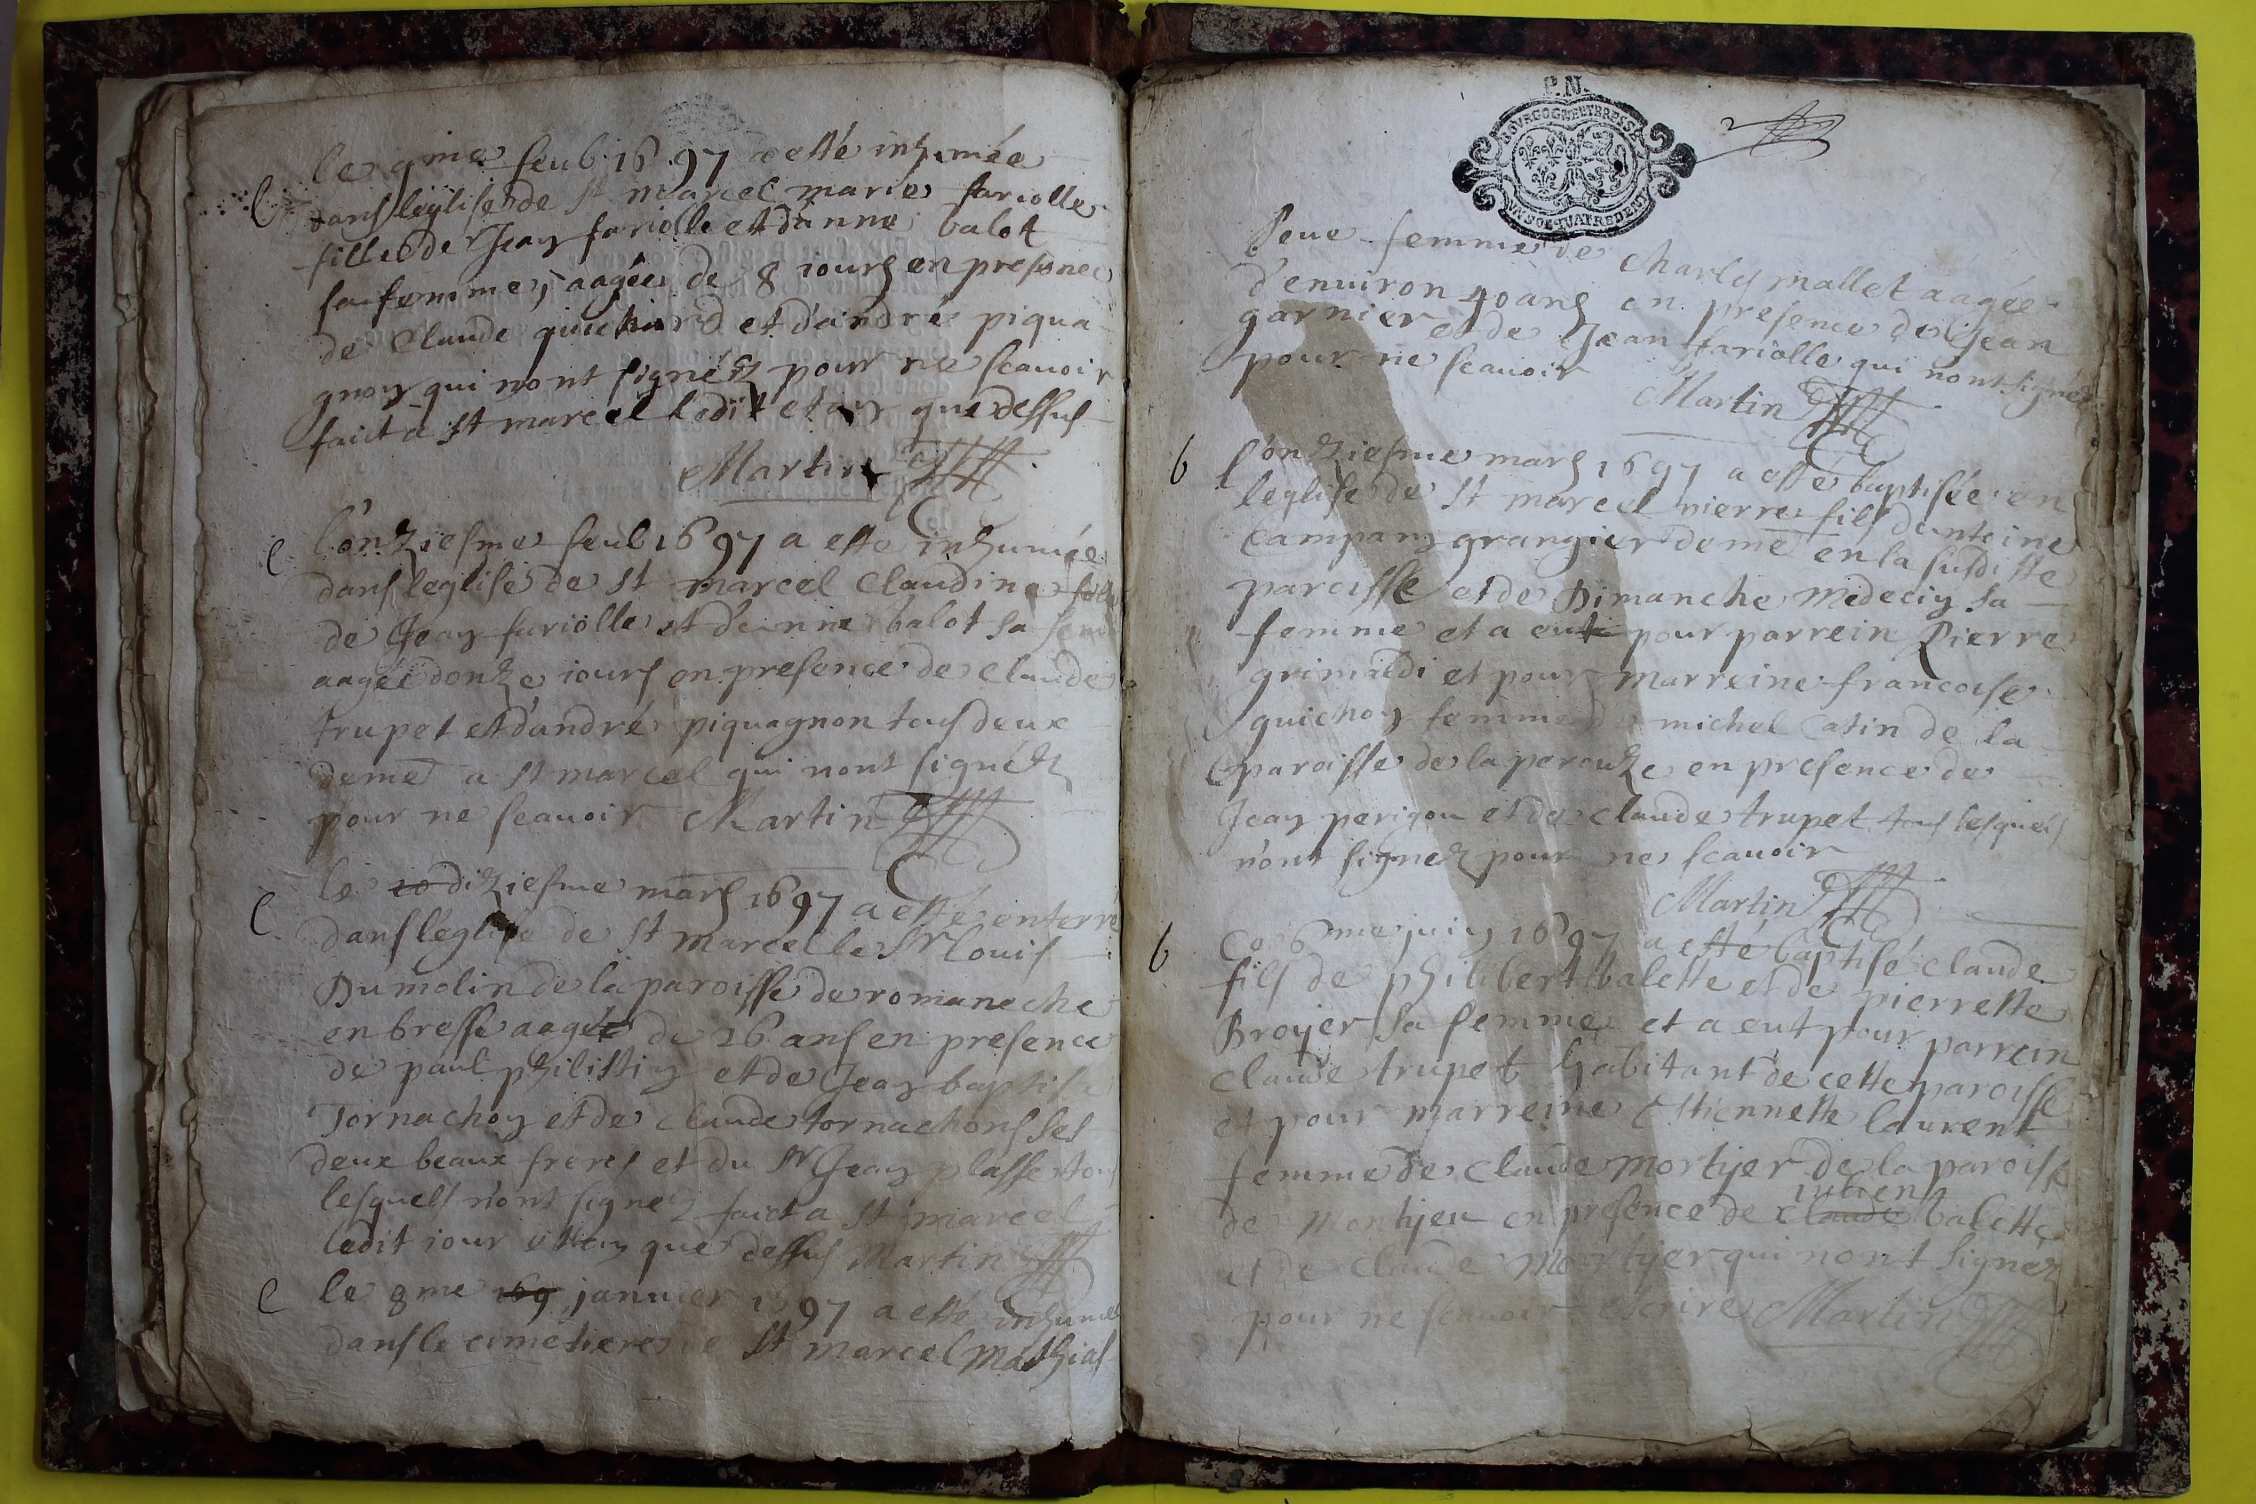 le 9me feub 1697 a esté inhumée
e dans leglise de st marcel marie fariolle
fille de Jean fariolle et danne balot
sa femme, aagée de 8 iours en presence
de claude guichard et dandré piqua
gnon qui nont signéz pour ne scauoir
faict a st marcel ledit et an que dessus
Martin
e l'onziesme feub 1697 a esté inhumée
dans leglise de st marcel claudine fille
de Jean fariolle et d'anne balot sa femme
aagée donze iours en presence de claude
trupet et dandré piquagnon tous deux
deme a st marcel qui nont signéz
pour ne scauoir Martin
e le 10 diziesme mars 1697 a esté enterré
dans l'eglise de st marcel le Sr Louis
Dumolin de la paroisse de romaneche
en bresse aagé de 26 ans en presence
de paul philistin et de Jean baptiste
Tornachon et de claude tornachons ses
deux beaux freres et du Sr Jean plasse tous
lesquels n'ont signez faict a st marcel
ledit iour et an que dessus Martin
e le 8me 169 januier 1697 a esté inhumé
dans le cimetiere de st marcel Mathias
P.N.
BOVRGOGNE ET BRESSE
VN SOL QVATRE DEN
Peue femme de charly mallet aagée
d'enuiron 40 ans en presence de Jean
garnier et de Jean fariolle qui nont signéz
pour ne scauoir Martin
b l'onziesme mars 1697 a esté baptisée en
leglise de st marcel pierre fils dantoine
Campan grangier deme en la susditte
paroisse et de Dimanche Medecin sa
femme et a eut pour parrein Pierre
grimaldi et pour marreine francoise
guichon femme de michel Catin de la
paroisse de la perouze en presence de
Jean perigou et de claude trupet tous lesquels
n'ont signez pour ne scauoir
Martin
b Ce 6me juin 1697 a esté baptisé claude
fils de philibert balette et de pierrette
Broyer sa femme et a eut pour parrein
claude trupet habitant de cette paroisse
et pour marreine Estiennette laurent
femme de claude mortyer de la paroisse
de Montyeu en presence de claude iulien balette
et de claude Mortyer qui nont signez
pour ne scauoir escrire Martin